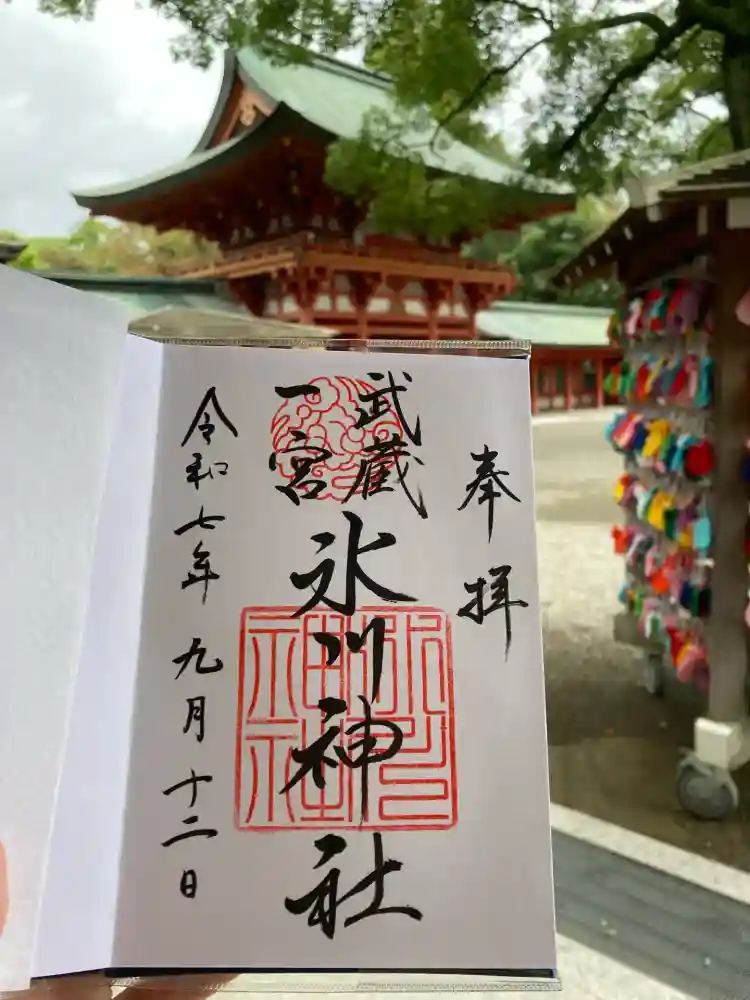 奉拝
武蔵
一宮
氷川神社
氷川
神社
令和七年九月十二日